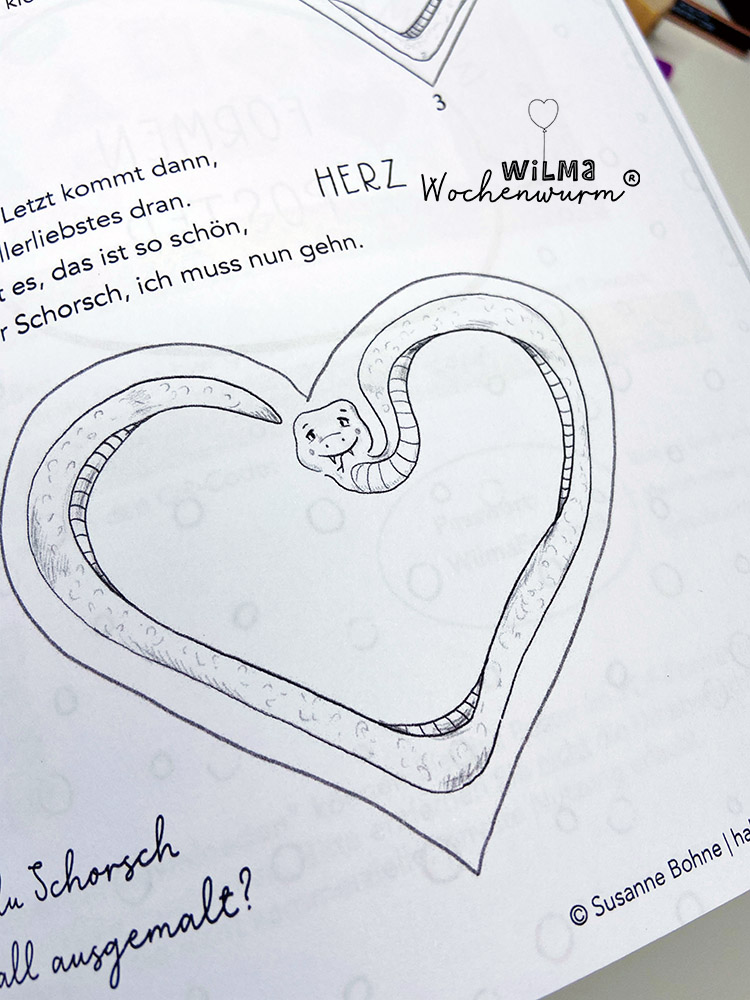 3
Letzt kommt dann,
llerliebstes dran.
es, das ist so schön,
r Schorsch, ich muss nun gehn.
HERZ
WiLMa
Wochenwurm®
du Schorsch
all ausgemalt?
© Susanne Bohne | ha